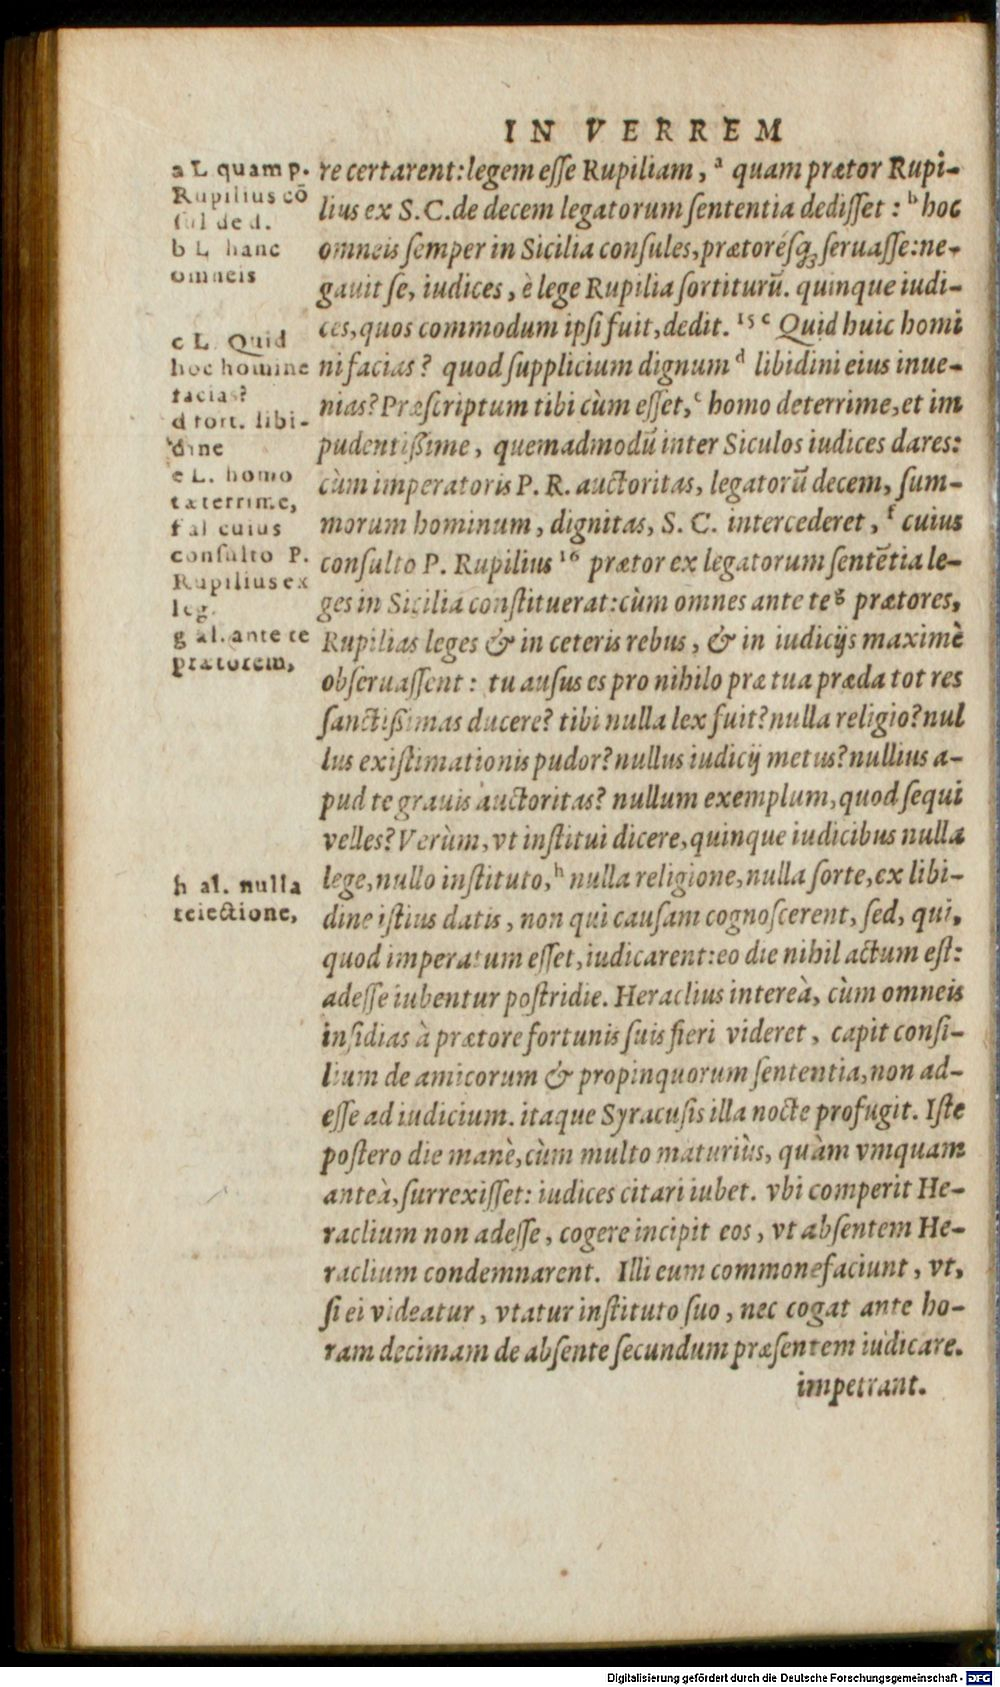 IN VERREM
a L. quam p.
Rupilius cō
sul de d.
b L. hanc
omneis
c L. Quid
hoc homine
facias?
d fort. libi-
dine
e L. homo
tæterrime,
f al cuius
consulto P.
Rupilius ex
leg.
g al. ante te
prætorem,
h al. nulla
reiectione,
re certarent: legem esse Rupiliam, ᵃ quam prætor Rupi-
lius ex S.C. de decem legatorum sententia dedisset: ᵇ hoc
omneis semper in Sicilia consules, prætorésq; seruasse: ne-
gauit se, iudices, è lege Rupilia sortiturū. quinque iudi-
ces, quos commodum ipsi fuit, dedit. ¹⁵ ᶜ Quid huic homi
ni facias? quod supplicium dignum ᵈ libidini eius inue-
nias? Præscriptum tibi cùm esset, ᵉ homo deterrime, et im
pudentissime, quemadmodū inter Siculos iudices dares:
cùm imperatoris P. R. auctoritas, legatorū decem, sum-
morum hominum, dignitas, S. C. intercederet, ᶠ cuius
consulto P. Rupilius ¹⁶ prætor ex legatorum sentētia le-
ges in Sicilia constituerat: cùm omnes ante te ᵍ prætores,
Rupilias leges & in ceteris rebus, & in iudicijs maximè
obseruassent: tu ausus es pro nihilo præ tua præda tot res
sanctissimas ducere? tibi nulla lex fuit? nulla religio? nul
lus existimationis pudor? nullus iudicij metus? nullius a-
pud te grauis auctoritas? nullum exemplum, quod sequi
velles? Verùm, vt institui dicere, quinque iudicibus nulla
lege, nullo instituto, ʰ nulla religione, nulla sorte, ex libi-
dine istius datis, non qui causam cognoscerent, sed, qui,
quod imperatum esset, iudicarent: eo die nihil actum est:
adesse iubentur postridie. Heraclius intereà, cùm omneis
insidias à prætore fortunis suis fieri videret, capit consi-
lium de amicorum & propinquorum sententia, non ad-
esse ad iudicium. itaque Syracusis illa nocte profugit. Iste
postero die manè, cùm multo maturiùs, quàm vmquam
anteà, surrexisset: iudices citari iubet. vbi comperit He-
raclium non adesse, cogere incipit eos, vt absentem He-
raclium condemnarent. Illi eum commonefaciunt, vt,
si ei videatur, vtatur instituto suo, nec cogat ante ho-
ram decimam de absente secundum præsentem iudicare.
impetrant.
Digitalisierung gefördert durch die Deutsche Forschungsgemeinschaft - DFG